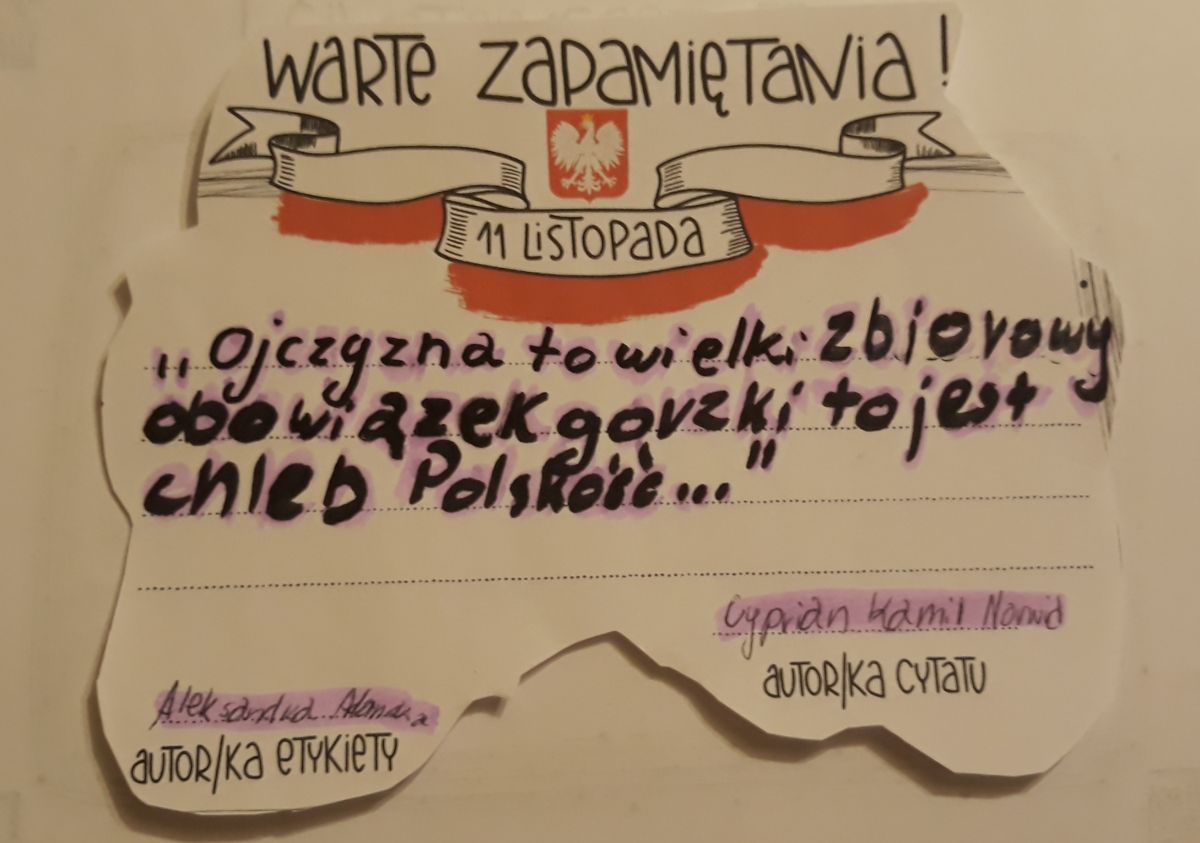 WARTE ZAPAMIĘTANIA!
11 LISTOPADA
,,Ojczyzna to wielki zbiorowy
obowiązek gorzki to jest
chleb Polskość..."
Cyprian Kamil Norwid
AUTOR/KA CYTATU
Aleksandra
AUTOR/KA ETYKIETY